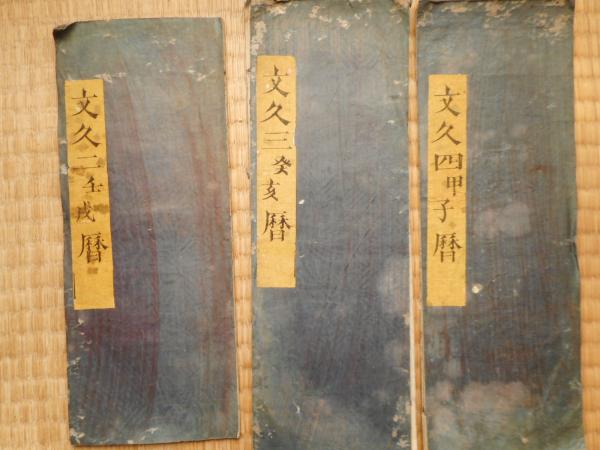 文久二壬戌暦
文久三癸亥暦
文久四甲子暦